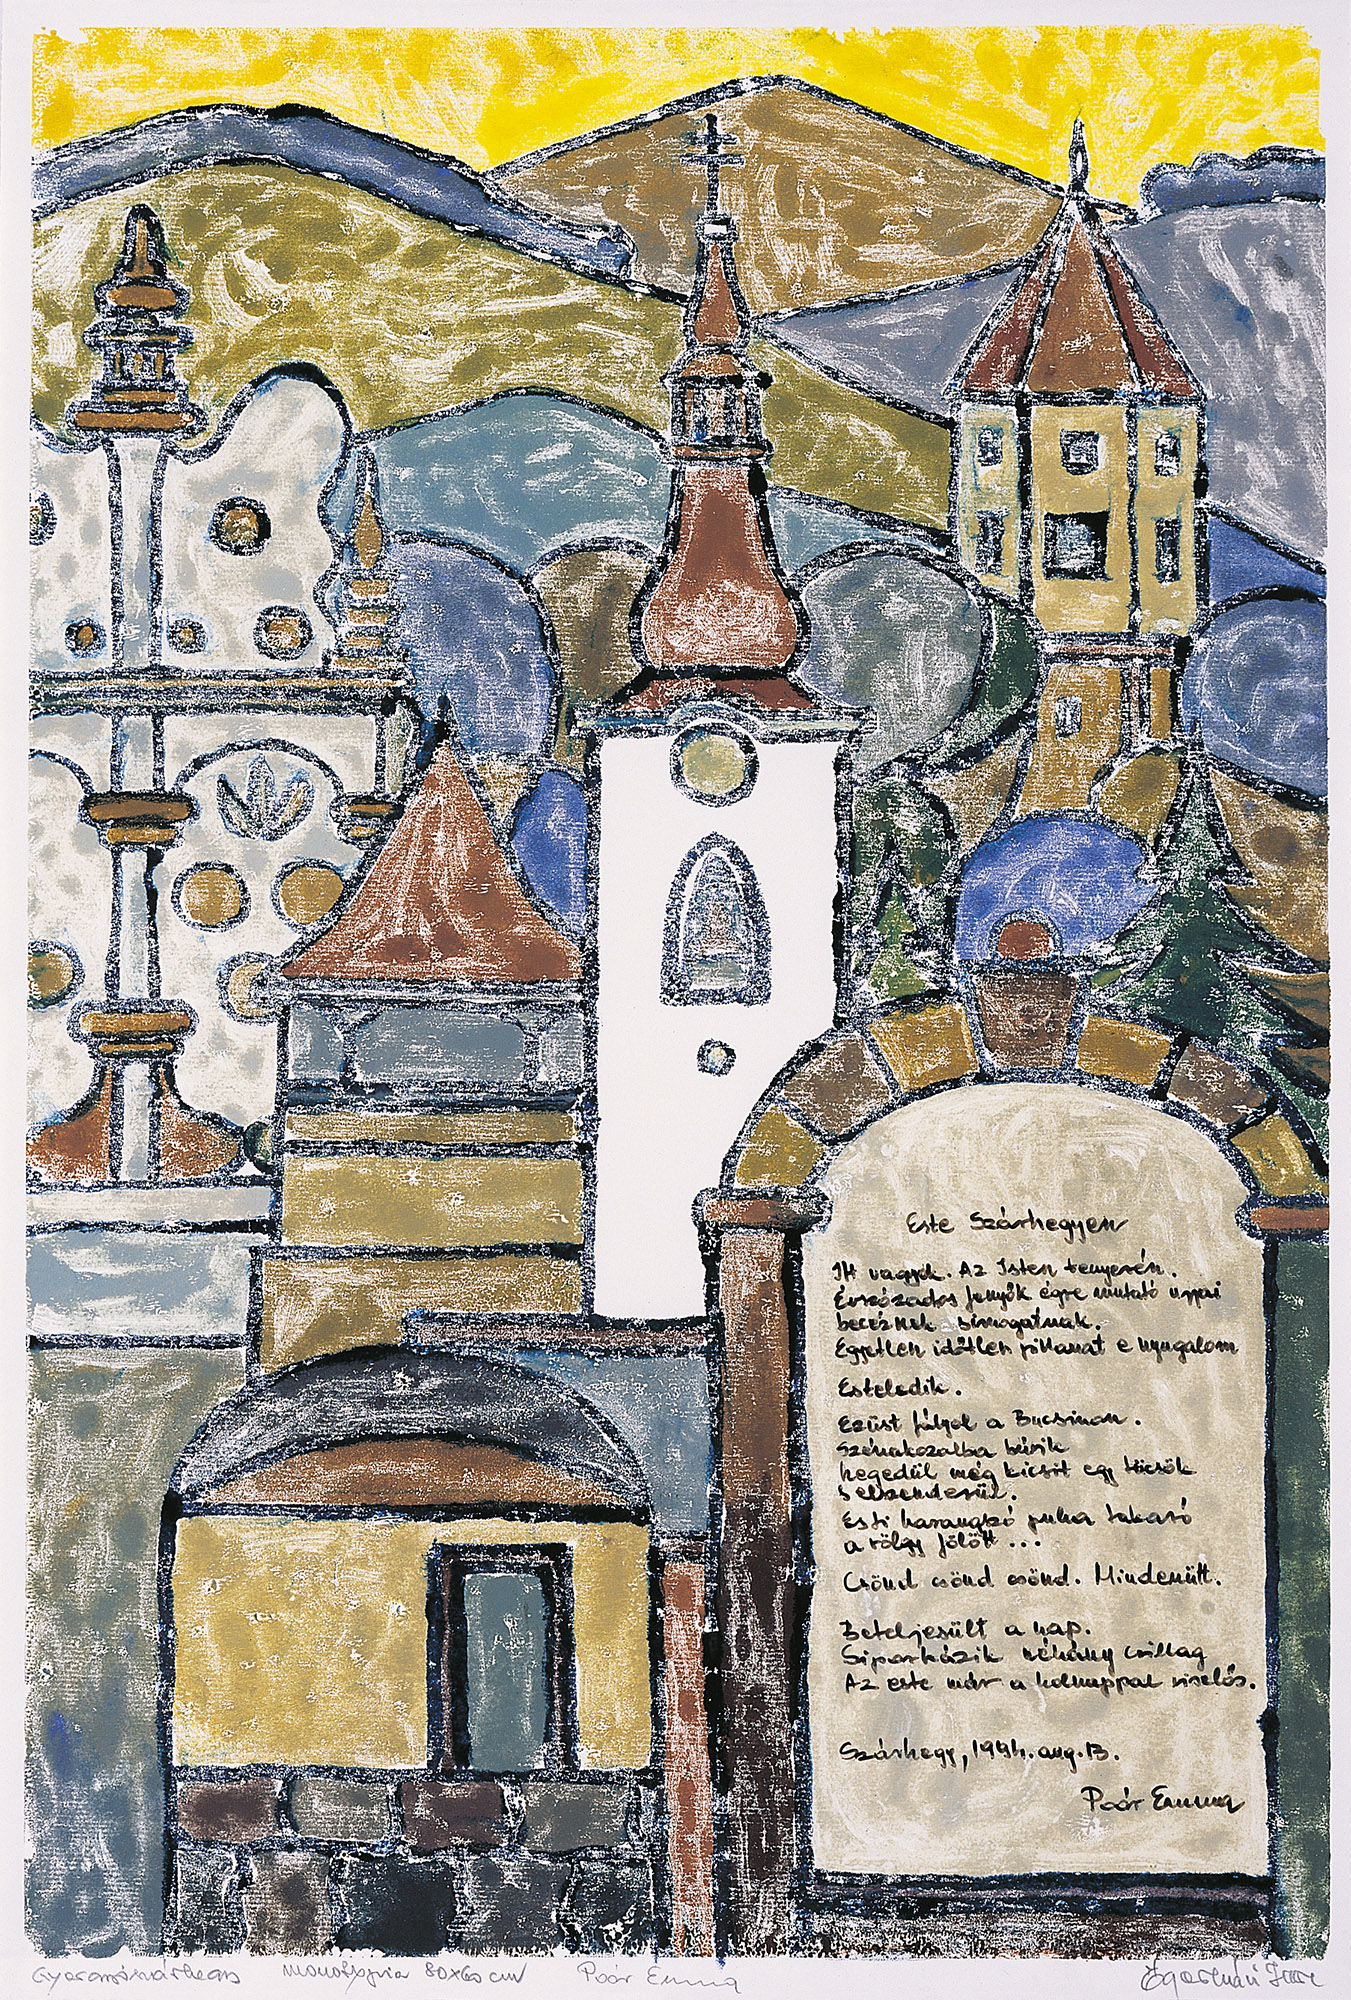 Este Szárhegyen
Itt vagyok. Az Isten tenyerén.
Évszázados fenyők égre mutató ujjai
becéznek simogatnak.
Egyetlen időtlen pillanat e nyugalom
Esteledik.
Ezüst fátyol a Bucsinon.
Szénakazalba búvik
hegedül még kicsit egy tücsök
s elszenderül.
Esti harangszó puha takaró
a völgy fölött...
Csönd csönd csönd. Mindenütt.
Beteljesült a nap.
Siporkázik néhány csillag
Az este már a holnappal viselős.
Szárhegy, 1994. aug. 13.
Poór Emma
monotypia 80x60 cm Poór Emma